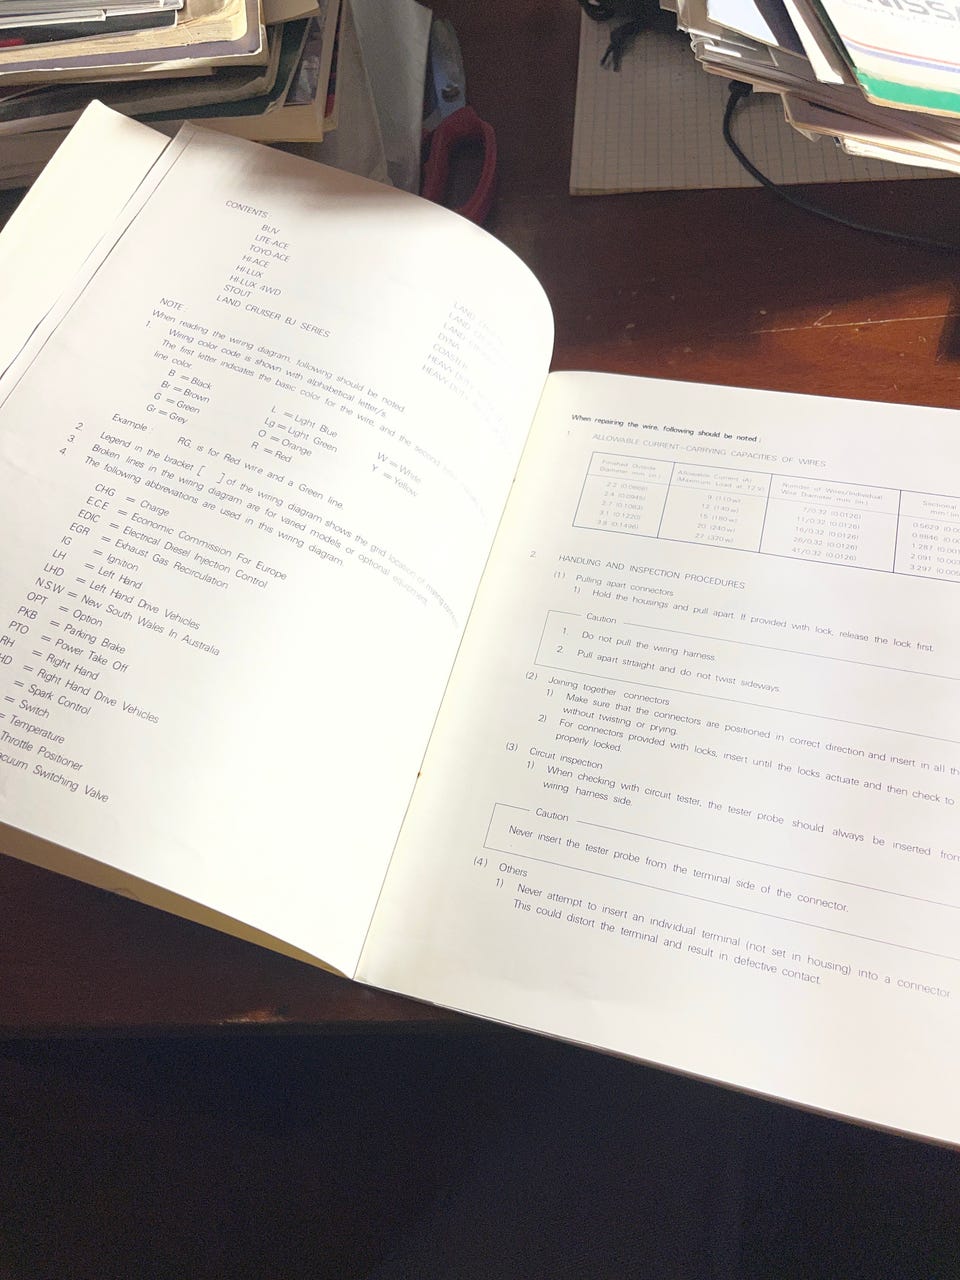 NISS
CONTENTS:
BUV
LITE-ACE
TOYO-ACE
HI-ACE
HI-LUX
HI-LUX 4WD
STOUT
LAND CRUISER BJ SERIES
LAND
LAND
LAND
DYNA
COASTER
HEAVY DUTY
HEAVY DUTY
NOTE
When reading the wiring diagram, following should be noted
1. Wiring color code is shown with alphabetical letter/s.
The first letter indicates the basic color for the wire, and the second
line color
B = Black
Br = Brown
G = Green
Gr = Grey
L = Light Blue
Lg = Light Green
O = Orange
R = Red
W = White
Y = Yellow
Example: RG, is for Red wire and a Green line.
2. Legend in the bracket [ ] of the wiring diagram shows the grid location of mating
3. Broken lines in the wiring diagram are for varied models or optional equipment.
4. The following abbreviations are used in this wiring diagram.
CHG = Charge
E.C.E = Economic Commission For Europe
EDIC = Electrical Diesel Injection Control
EGR = Exhaust Gas Recirculation
IG = Ignition
LH = Left Hand
LHD = Left Hand Drive Vehicles
N.S.W = New South Wales In Australia
OPT = Option
PKB = Parking Brake
PTO = Power Take Off
RH = Right Hand
HD = Right Hand Drive Vehicles
= Spark Control
= Switch
= Temperature
Throttle Positioner
acuum Switching Valve
When repairing the wire, following should be noted:
1 ALLOWABLE CURRENT-CARRYING CAPACITIES OF WIRES
Finished Outside Diameter mm (in.) Allowable Current (A) (Maximum Load at 12V) Number of Wires/Individual Wire Diameter mm (in.) Sectional
2.2 (0.0866) 9 (110w) 7/0.32 (0.0126) 0.5629
2.4 (0.0945) 12 (140w) 11/0.32 (0.0126) 0.8846
2.7 (0.1063) 15 (180w) 16/0.32 (0.0126) 1.287
3.1 (0.1220) 20 (240w) 26/0.32 (0.0126) 2.091
3.8 (0.1496) 27 (320w) 41/0.32 (0.0126) 3.297
2. HANDLING AND INSPECTION PROCEDURES
(1) Pulling apart connectors
1) Hold the housings and pull apart. If provided with lock, release the lock first.
Caution
1. Do not pull the wiring harness.
2. Pull apart strtaight and do not twist sideways.
(2) Joining together connectors
1) Make sure that the connectors are positioned in correct direction and insert in all th
without twisting or prying.
2) For connectors provided with locks, insert until the locks actuate and then check to
properly locked.
(3) Circuit inspection
1) When checking with circuit tester, the tester probe should always be inserted from
wiring harness side.
Caution
Never insert the tester probe from the terminal side of the connector.
(4) Others
1) Never attempt to insert an individual terminal (not set in housing) into a connector
This could distort the terminal and result in defective contact.